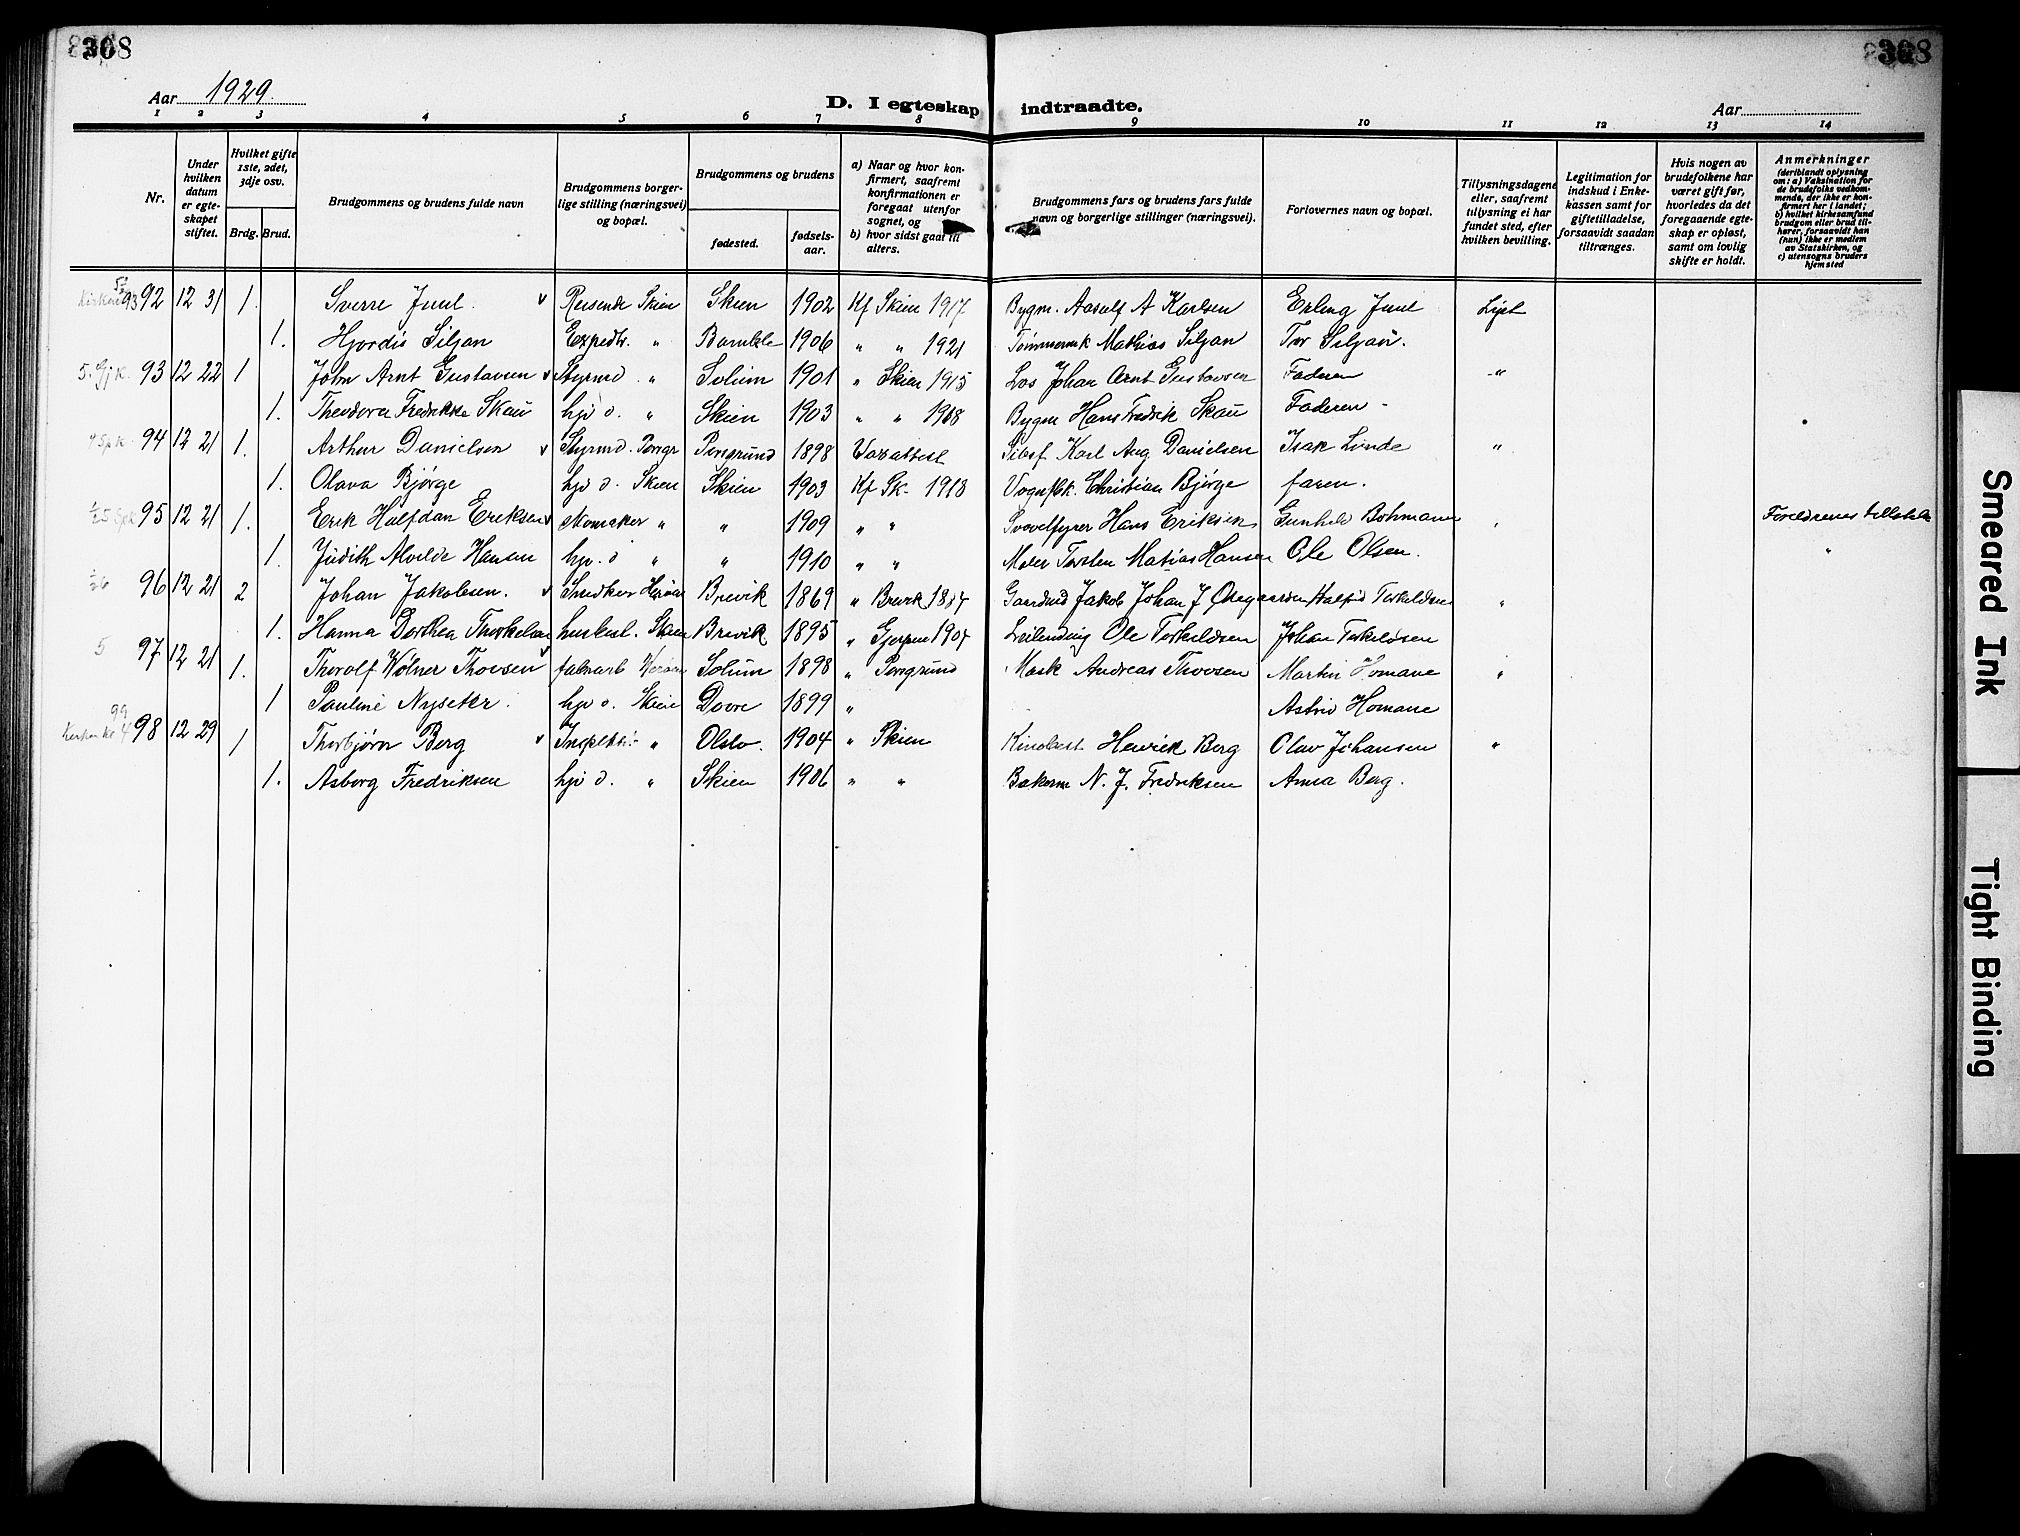 308
308
Aar 1929.
D. I egteskap indtraadte.
Aar
1 2 3 4 5 6 7 8 9 10 11 12 13 14
Nr.
Under hvilken datum er egteskapet stiftet.
Hvilket gifte 1ste, 2det, 3dje osv.
Brdg. Brud.
Brudgommens og brudens fulde navn
Brudgommens borgerlige stilling (næringsvei) og bopæl.
Brudgommens og brudens
fødested.
fødselsaar.
a) Naar og hvor konfirmert, saafremt konfirmationen er foregaat utenfor sognet, og b) hvor sidst gaat til alters.
Brudgommens fars og brudens fars fulde navn og borgerlige stillinger (næringsvei).
Forlovernes navn og bopæl.
Tillysningsdagene eller, saafremt tillysning ei har fundet sted, efter hvilken bevilling.
Legitimation for indskud i Enkekassen samt for giftetilladelse, forsaavidt saadan tiltrænges.
Hvis nogen av brudefolkene har været gift før, hvorledes da det foregaaende egteskap er opløst, samt om lovlig skifte er holdt.
Anmerkninger (deriblandt oplysning om: a) Vaksination for de brudefolks vedkommende, der ikke er konfirmert her i landet; b) hvilket kirkesamfund brudgom eller brud tilhører, forsaavidt han (hun) ikke er medlem av Statskirken, og c) utensogns bruders hjemsted
92 12 31 1. Sverre Juul. Reisende Skien Skien 1902 Kf Skien 1917 Bygm. Aasulf A Karlsen Erling Juul Lyst
1. Hjordis Siljan Expedtr. " Bamble 1906 " " 1921 Mathias Siljan Tor Siljan.
93 12 22 1 John Arnt Gustavsen Styrmd. " Solum 1901 " Skien 1915 Los Johan Arnt Gustavsen Faderen "
1. Theodora Fredrikke Skau hjv d. " Skien 1903 " " 1918 Bygm Hans Fredrik Skau Faderen -
94 12 21 1. Arthur Danielsen Styrmd. Porsgr Porsgrund 1898 Vaxattest Karl Aug Danielsen Isak Lunde "
1. Olava Bjørge hjv d. Skien Skien 1903 Kf Sk. 1918 Christian Bjørge faren.
95 12 21 1. Erik Halfdan Eriksen " " 1909 " " Hans Eriksen Gunhild Bohmann " Forældrenes
1. Judith Alvilde Hansen hjv. d " " 1910 " " Maler Torsten Matias Hansen Ole Olsen. "
96 12 21 2 Johan Jakobsen. Snedker Herøen Brevik 1869 " Brevik 1884 Jakob Johan J "
1. Hanna Dorthea Thorkelsen Skien Brevik 1895 " Gjerpen 1907 Ole Terkildsen Johan Terkildsen
97 12 21 1. Thorolf Wølner Thovsen fabrarb Herøen Solum 1898 " Porsgrund Mask Andreas Thovsen Martin Homane "
1 Pauline Nyseter. hjv d. Skien Dovre 1899 " Astrid Homane
98 12 29 1 Thorbjørn Berg " Olslo. 1904 " Skien Henrik Berg Olav Johansen "
1. Asborg Fredriksen hjv d. " Skien 1906 " " N. J. Fredriksen Anna Berg.
Smeared Ink
Tight Binding